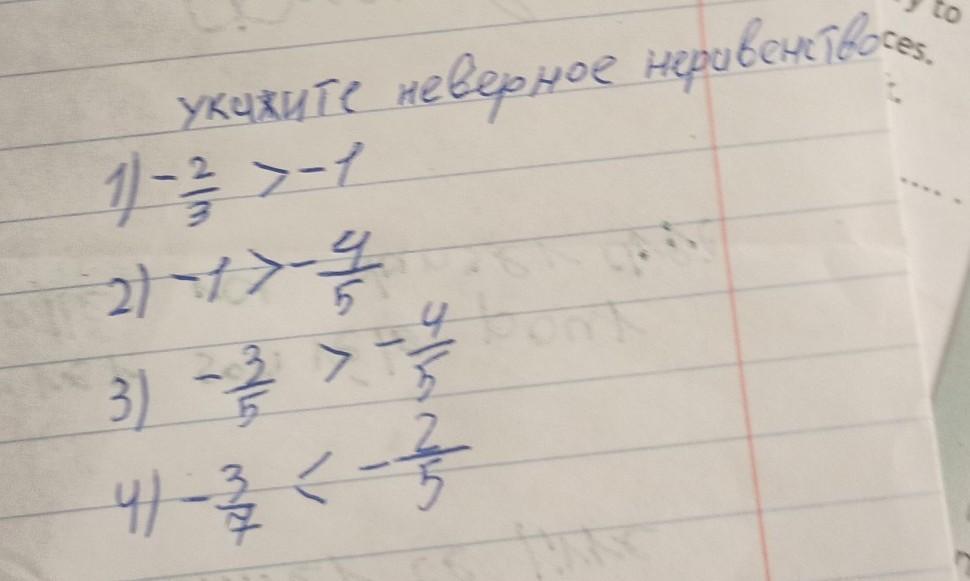 y to
ces.
укажите неверное неравенство
1) -2/3 > -1
2) -1 > -4/5
3) -3/5 > -4/5
4) -3/7 < -2/5